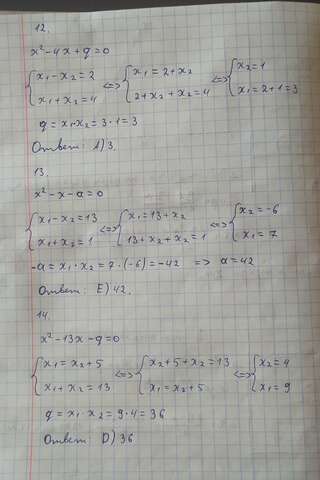 12.
x² - 4x + q = 0
{ x₁ - x₂ = 2 <=> { x₁ = 2 + x₂ <=> { x₂ = 1
x₁ + x₂ = 4 2 + x₂ + x₂ = 4 x₁ = 2 + 1 = 3
q = x₁·x₂ = 3·1 = 3
Ответ: А) 3.
13.
x² - x - a = 0
{ x₁ - x₂ = 13 <=> { x₁ = 13 + x₂ <=> { x₂ = -6
x₁ + x₂ = 1 13 + x₂ + x₂ = 1 x₁ = 7
-a = x₁·x₂ = 7·(-6) = -42 => a = 42
Ответ: E) 42.
14.
x² - 13x - q = 0
{ x₁ = x₂ + 5 <=> { x₂ + 5 + x₂ = 13 <=> { x₂ = 4
x₁ + x₂ = 13 x₁ = x₂ + 5 x₁ = 9
q = x₁·x₂ = 9·4 = 36
Ответ: D) 36